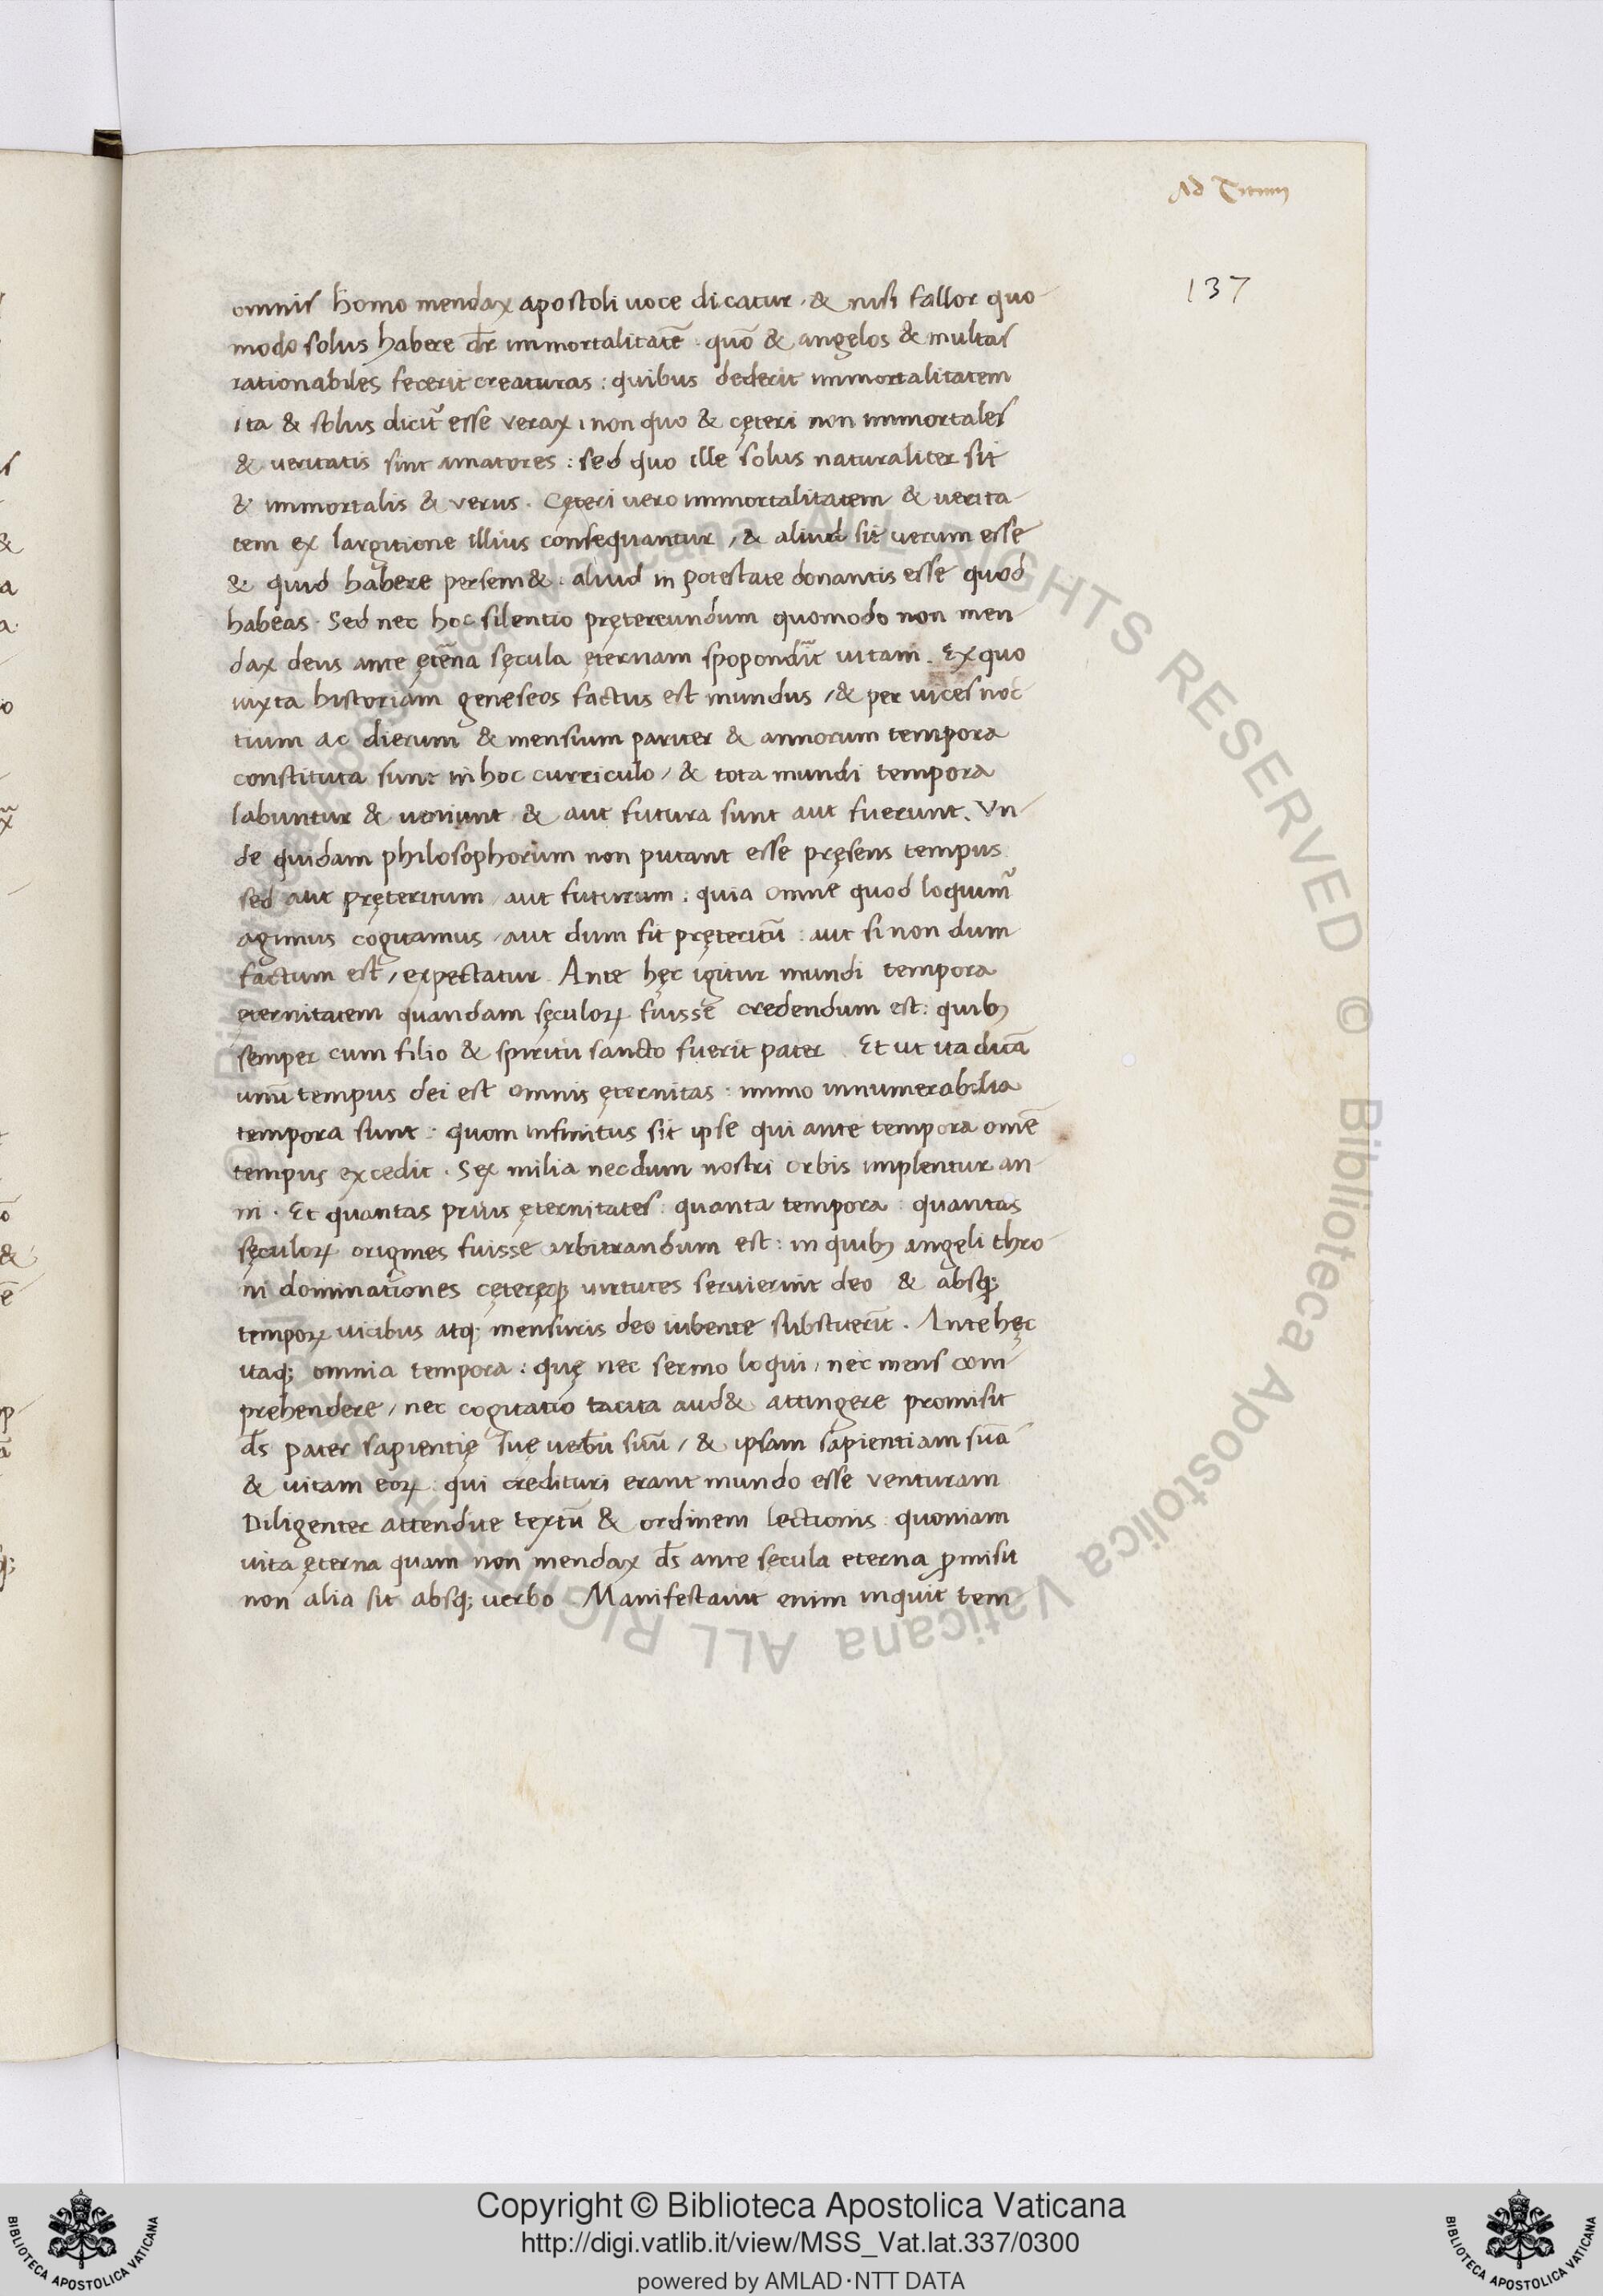 Ad Titum
137
omnis homo mendax apostoli uoce dicatur, & nisi fallor quo
modo solus habere dr̄ immortalitatē quō & angelos & multas
rationabiles fecerit creaturas: quibus dederit immortalitatem
ita & solus dicit᷑ esse verax, non quo & cęteri non immortales
& veritatis sint amatores: sed quo ille solus naturaliter sit
& immortalis & verus. Cęteri vero immortalitatem & verita
tem ex largitione illius consequantur, & aliud sit verum esse
& quid habere persem&. aliud in potestate donantis esse quod
habeas. Sed nec hoc silentio prętereundum quomodo non men
dax deus ante ętēna sęcula ęternam spopondit uitam. Ex quo
iuxta historiam geneseos factus est mundus, & per uices noc
tium ac dierum & mensium pariter & annorum tempora
constituta sunt in hoc curriculo, & tota mundi tempora
labuntur & ueniunt & aut futura sunt aut fuerunt. Vn
de quidam philosophorum non putant esse pręsens tempus
sed aut pręteritum, aut futurum: quia omne quod loquim᷑
agimus cogitamus, aut dum fit pręteritū: aut si non dum
factum est, expectatur. Ante hęc igitur mundi tempora
ęternitatem quandam sęculoꝝ fuisse credendum est: quibꝫ
semper cum filio & spiritu sancto fuerit pater. Et ut ita dicā
unū tempus dei est omnis ęternitas: immo innumerabilia
tempora sunt: quom infinitus sit ipse qui ante tempora omē
tempus excedit. Sex milia necdum nostri orbis implentur an
ni. Et quantas prius ęternitates: quanta tempora: quantas
sęculoꝝ origines fuisse arbitrandum est: in quibꝫ angeli thro
ni dominationes cęteręqꝫ uirtutes seruierint deo & absqꝫ
temporꝝ uicibus atqꝫ mensuris deo iubente substiterit. Ante hęc
itaqꝫ omnia tempora: quę nec sermo loqui, nec mens com
prehendere, nec cogitatio tacita aud& attingere promisit
ds̄ pater sapientię suę uerbū suū, & ipsam sapientiam suā
& uitam eoꝝ: qui credituri erant mundo esse venturam
Diligenter attendite textū & ordinem lectionis: quoniam
uita ęterna quam non mendax ds̄ ante secula eterna ꝓmisit
non alia sit absqꝫ uerbo. Manifestauit enim inquit tem
Copyright © Biblioteca Apostolica Vaticana
http://digi.vatlib.it/view/MSS_Vat.lat.337/0300
powered by AMLAD·NTT DATA